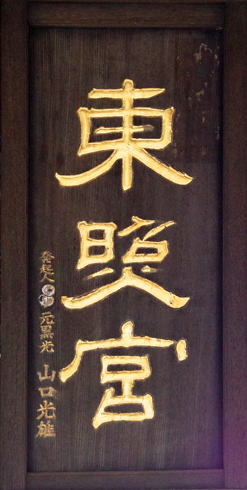 東照宮
発起人 元黒光 山口光雄